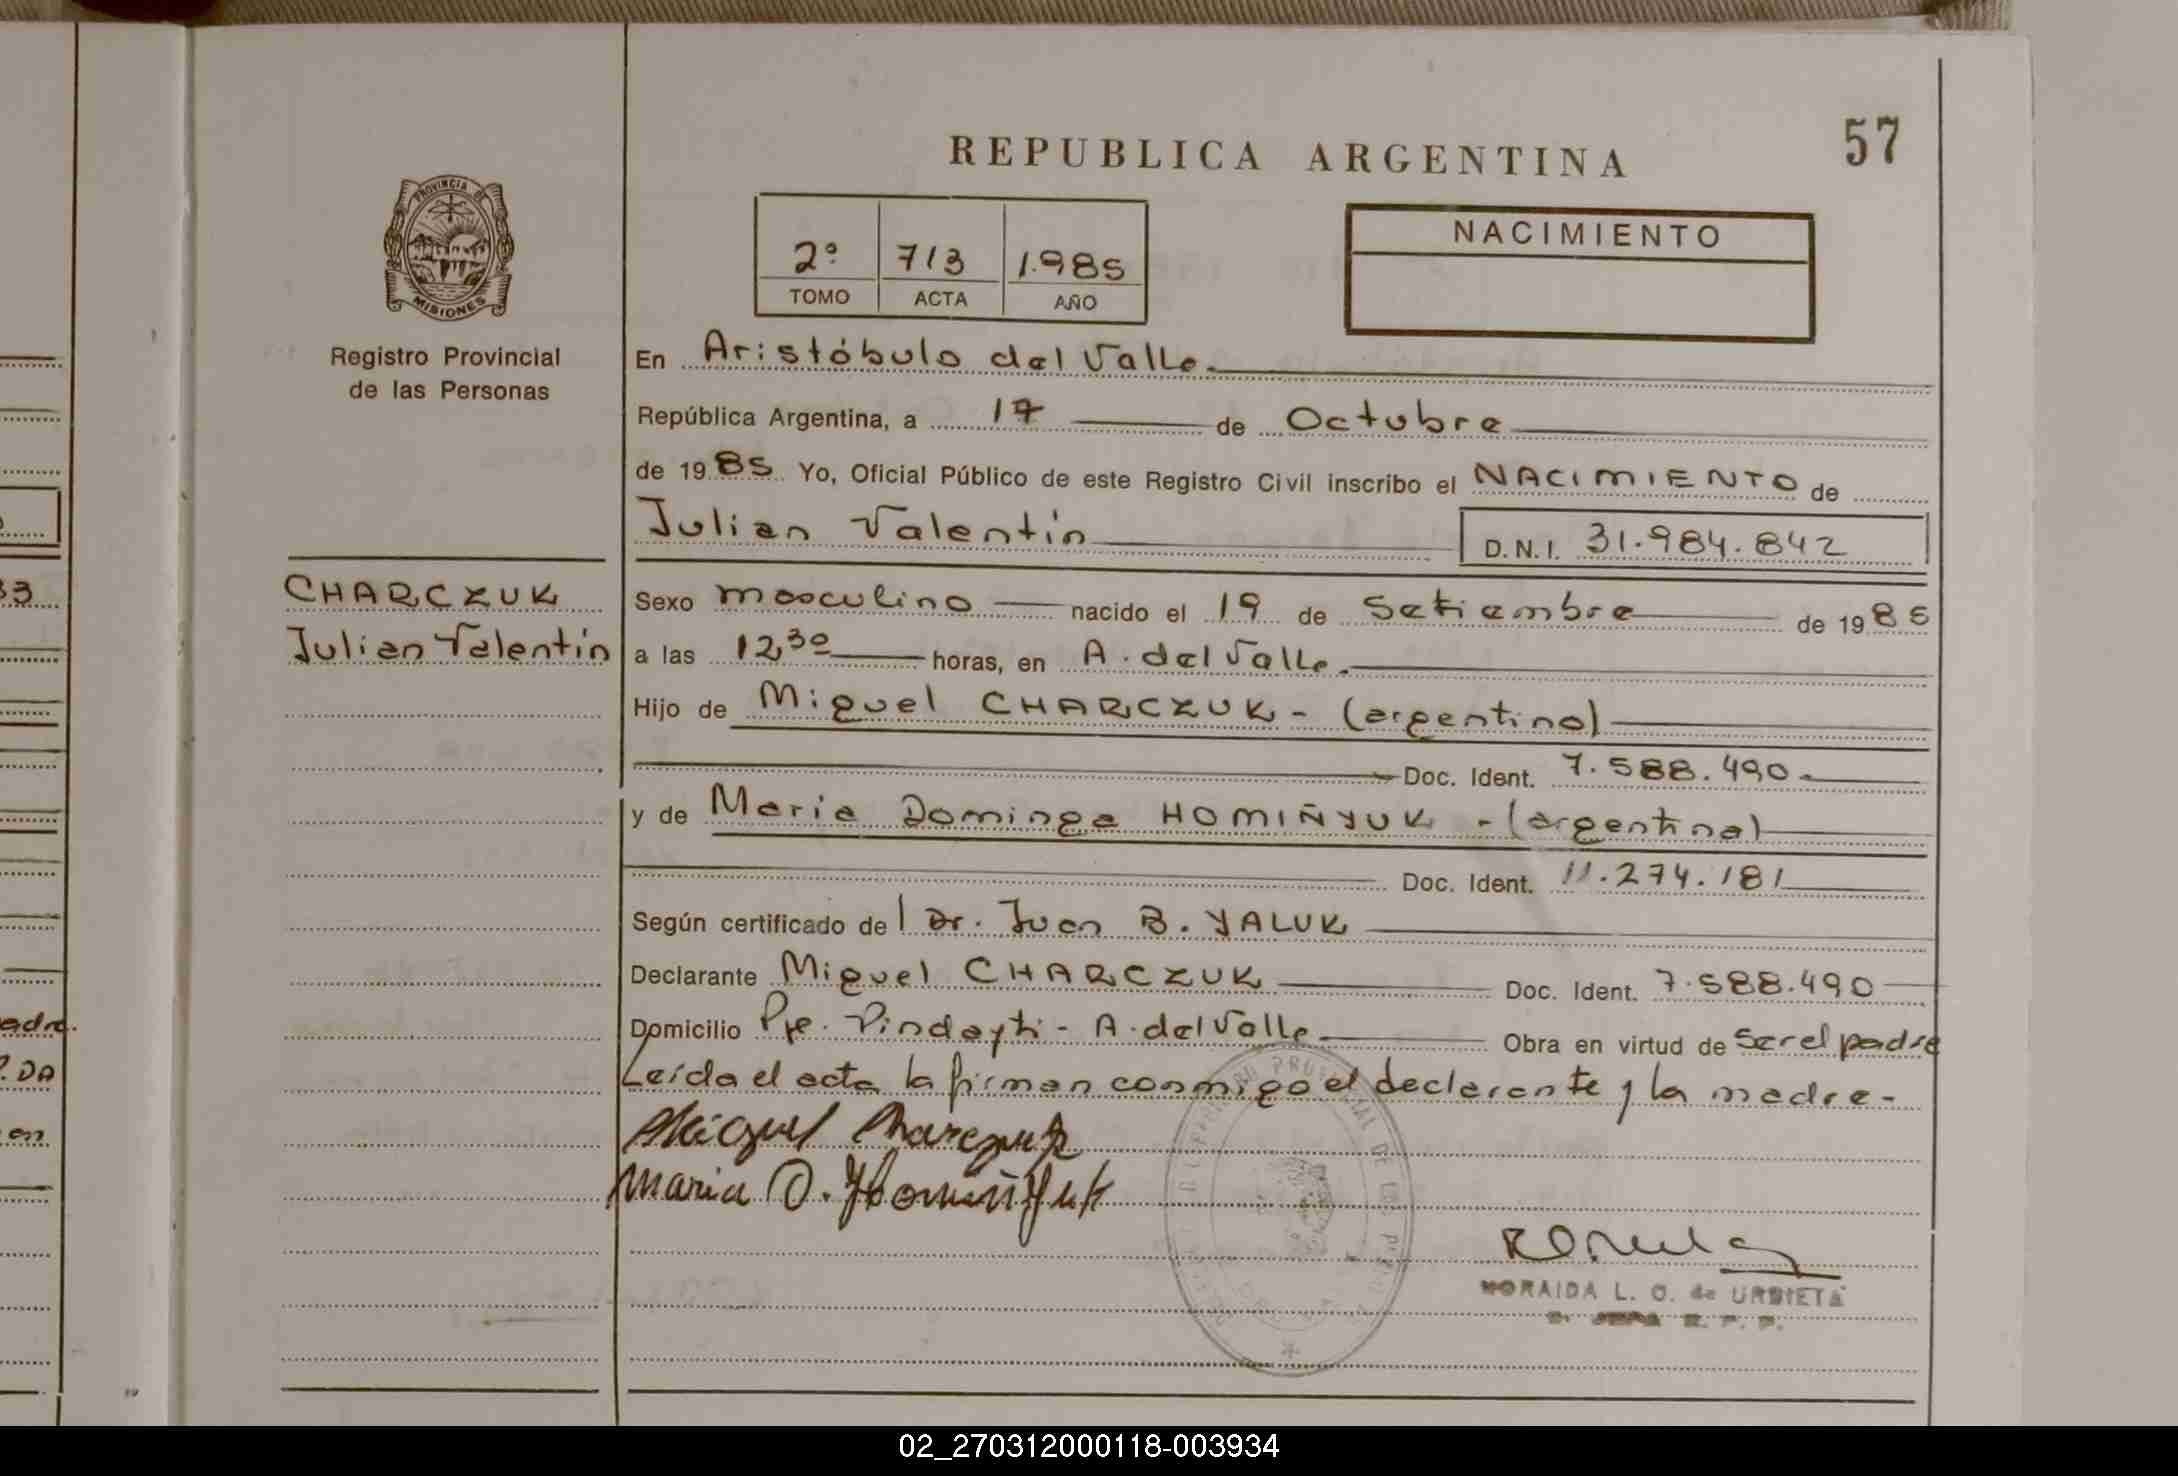 57
REPUBLICA ARGENTINA
PROVINCIA DE
MISIONES
Registro Provincial
de las Personas
2º 713 1.985
TOMO ACTA AÑO
NACIMIENTO
En Aristóbulo del Valle.
República Argentina, a 17 de Octubre
de 1985 Yo, Oficial Público de este Registro Civil inscribo el NACIMIENTO de
Julian Valentín D.N.I. 31.984.842
CHARCZUK
Julian Valentín
Sexo masculino nacido el 19 de Setiembre de 1985
a las 12,30 horas, en A. del Valle.
Hijo de Miguel CHARCZUK - (argentino)
Doc. Ident. 7.588.490.
y de Maria Dominga HOMIÑYUK - (argentina)
Doc. Ident. 11.274.181
Según certificado del Dr. Juan B. YALUK
Declarante Miguel CHARCZUK Doc. Ident. 7.588.490
Domicilio Pje. Pindayti - A. del Valle. Obra en virtud de ser el padre
Leída el acta la firman conmigo el declarante y la madre-
Miguel Charczuk
Maria D. Homiñyuk
NORAIDA L. O. de URBIETA
33
adre.
DA
en
02_270312000118-003934